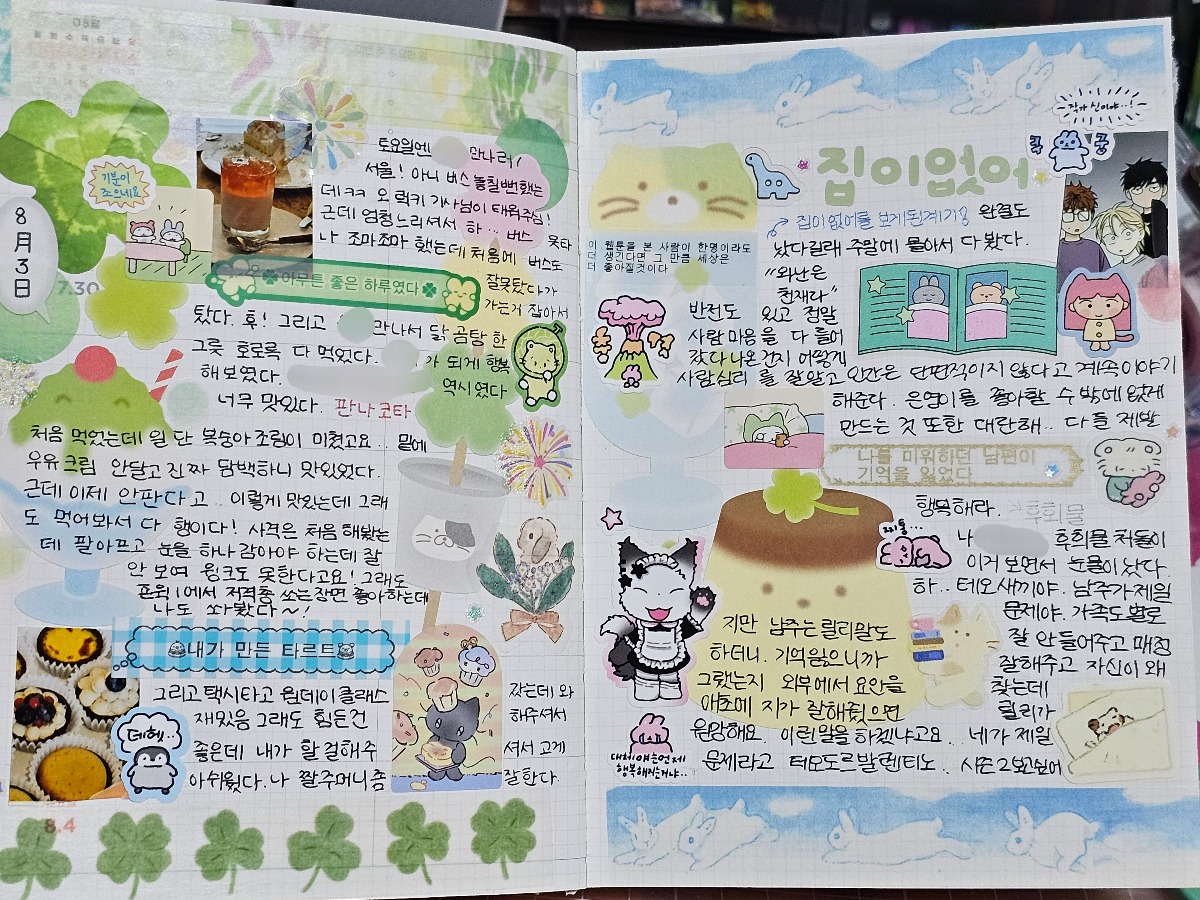 08월
기분이
조으네요
8
月
3
日
7.30
토요일엔 만나러!
서울! 아니 버스 놓칠뻔했는
데ㅋㅋ 오 럭키 기사님이 태워주심!
근데 엄청느리셔서 하... 버스 못타
나 조마조마 했는데 처음에 버스도
♣아무튼 좋은 하루였다♣
잘못탔다가
가는거 잡아서
탔다. 휴! 그리고 만나서 닭 곰탕 한
그릇 호로록 다 먹었다. 가 되게 행복
해보였다. 역시였다
너무 맛있다. 판나코타
처음 먹었는데 일 단 복숭아조림이 미쳤고요.. 밑에
우유 크림 안달고 진짜 담백하니 맛있었다.
근데 이제 안판다고.. 이렇게 맛있는데 그래
도 먹어봐서 다 행이다! 사격은 처음 해봤는
데 팔아프고 눈을 하나 감아야 하는데 잘
안 보여 윙크도 못한다고요! 그래도
에서 저격총 쏘는장면 좋아하는데
나도 쏴봤다~!
내가 만든 타르트
그리고 택시타고 원데이 클래스 갔는데 와
재밌음 그래도 힘든건 하우셔서
좋은데 내가 할걸해주 셔서 고게
아쉬웠다. 나 짤주머니좀 잘한다
데헷..
8.4
작가 신이야..!
쿵 쿵
집이없어
집이없어를 보게된계기? 완결도
났다길래 주말에 몰아서 다 봤다.
이 웹툰을 본 사람이 한명이라도
더 생긴다면 그 만큼 세상은
더 좋아질것이다
"와난은
천재다"
반전도 있고 정말
사람마음을 다 들어
갔다 나온건지 어떻게
사람심리 를 잘알고 인간은 단편적이지 않다고 계속이야기
해준다. 은영이를 좋아할 수 밖에 없게
만드는 것 또한 대단해.. 다들 제발
나를 미워하던 남편이
기억을 잃었다
행복해라.
후회물
찌통...
나 후회물 처돌이
이거 보면서 눈물이났다.
하.. 테오새끼야. 남주가제일
문제야. 가족도별로
지만 남주는릴리말도 잘 안들어주고 매정
하더니. 기억잃으니까 잘해주고 자신이 왜
그랬는지 외부에서요인을 찾는데
애초에 지가 잘해줬으면 릴리가
원망해요. 이런말을 하겠냐고요.. 네가 제일
문제라고 테오도르발렌티노.. 시즌2보고싶어
대체얘는언제
행복해지는거냐..